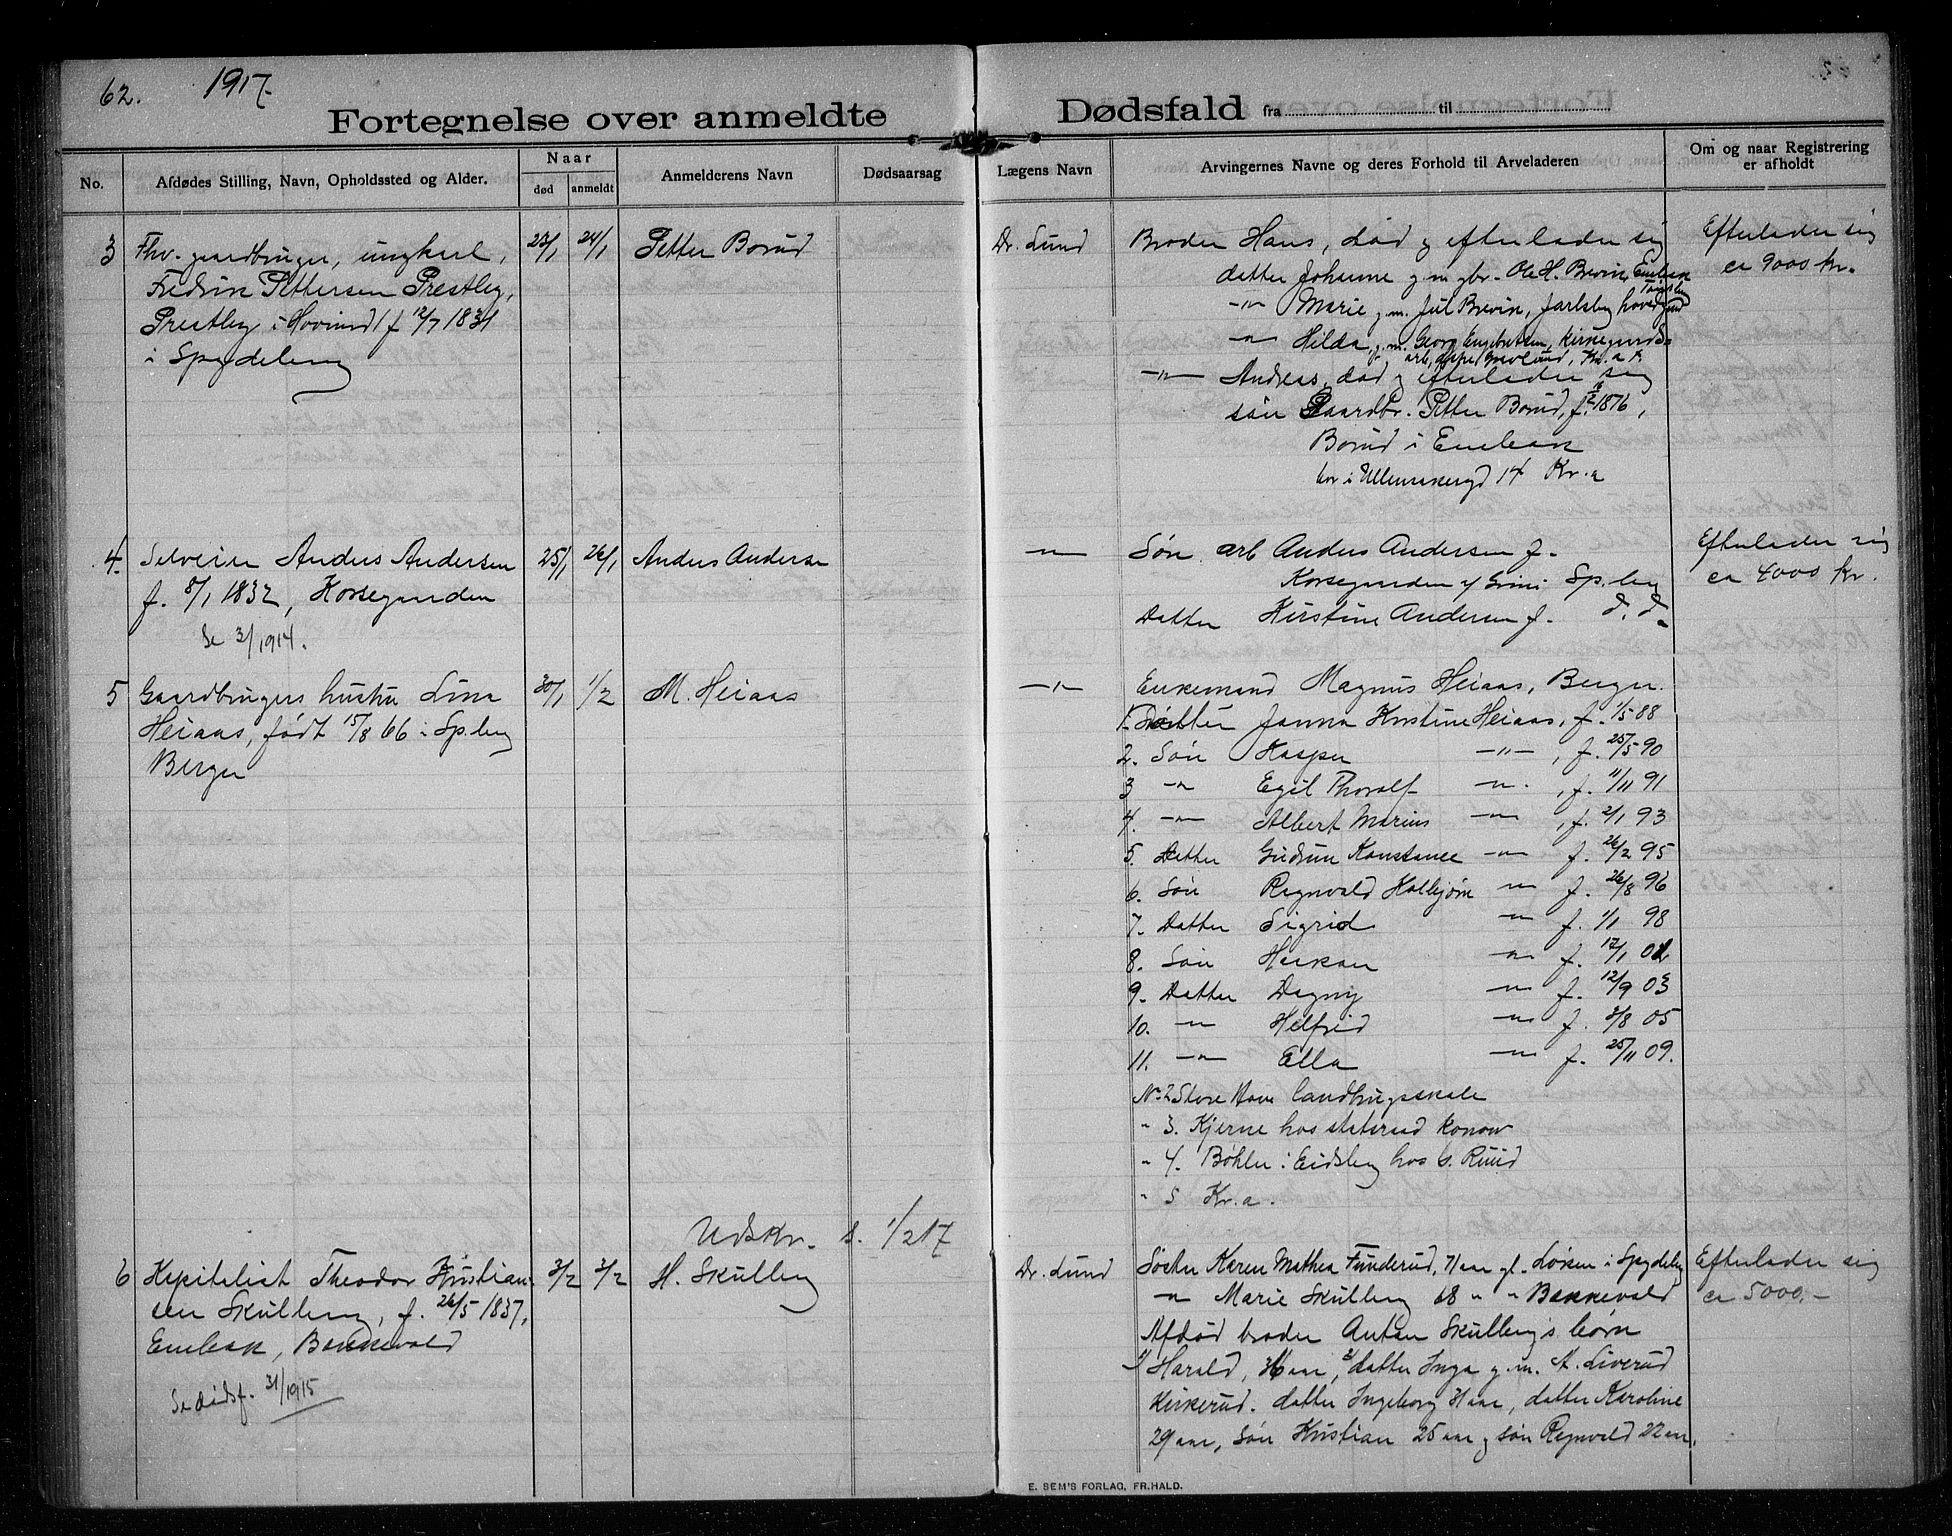 62. 1917.
Fortegnelse over anmeldte Dødsfald fra til
No.
Afdødes Stilling, Navn, Opholdssted og Alder.
Naar
død anmeldt
Anmelderens Navn
Dødsaarsag
Lægens Navn
Arvingernes Navne og deres Forhold til Arveladeren
Om og naar Registrering
er afholdt
3 Fhv. gaardbruger, ungkarl, 23/1 24/1 Petter Borud
Fredrik Pettersen Prestby,
Prestby i Hovind f 12/7 1831
i Spydeberg
Dr. Lund
Broder Hans, død g efterlader sig
datter Johanne g.m. gbr. Ole H. Brevik, Enebak
-"- Marie g.m. Jul Brevik, Jarlsberg hovedgård
-"- Hilda g.m. Georg Engebretsen, Kirkegårds-
arb,
-"- Andreas, død g efterlader sig
søn Gaardbr. Petter Borud, f. 1876,
Borud i Enebak
bor i Ullensakergd 14 Kr.a
Efterlader sig
ca 9000 kr.
4. Selveier Anders Andersen 25/1 26/1 Anders Andersen
f. 8/1 1832, Korsegården
Se 3/1914.
-"-
Søn arb Anders Andersen f.
Korsegården Spberg
Datter Kirstine Andersen f. d. d.
Efterlader sig
ca 4000 kr.
5 Gaardbrugers hustru Lina 30/1 1/2 M. Heiaas
Heiaas, født 15/8 66 i Spberg
Berger
-"-
Enkemand Magnus Heiaas, Berger.
1. Datter Janna Kristine Heiaas, f. 1/5 88
2. Søn Kasper -"-, f. 25/5 90
3 -"- Egil Thoralf -"-, f. 11/11 91
4. -"- Albert Marius -"-, f. 2/1 93
5. Datter Gudrun Konstanse -"- f. 26/2 95
6. Søn Ragnvald Kolbjørn -"- f. 26/8 96
7. Datter Sigrid -"- f. 1/1 98
8. Søn Haakon -"- f. 17/1 01
9. Datter Dagny -"- f. 12/9 03
10. -"- Helfrid -"- f. 2/8 05
11. -"- Ella -"- f. 25/11 09.
No 2 Store Hove landbrugsskole
" 3. Kjerne hos statsraad Konow
" 4. Bøhler i Eidsberg hos G. Ruud
" 5 Kr.a.
Udskr. s. 1/2 17
6 Kapitalist Theodor Kristian- 2/2 3/2 H. Skulberg
sen Skulberg, f. 26/5 1837,
Enebak, Bakkevold
Se dødsf. 31/1915
Dr. Lund
Søster Karen Mathea Funderud, 71 aar gl. Løken i Spydeberg
-"- Marie Skulberg 68 " " Bakkevold
Afdød broder Anton Skulberg's børn
1/ Harald, aar, 2/ datter Inga g.m. A. Liverud
Kirkerud. datter Ingeborg aar, datter Karoline
29 aar, søn Kristian 25 aar g søn Ragnvald 22 aar.
Efterlader sig
ca 5000.-
E. SEM'S FORLAG, FR.HALD.